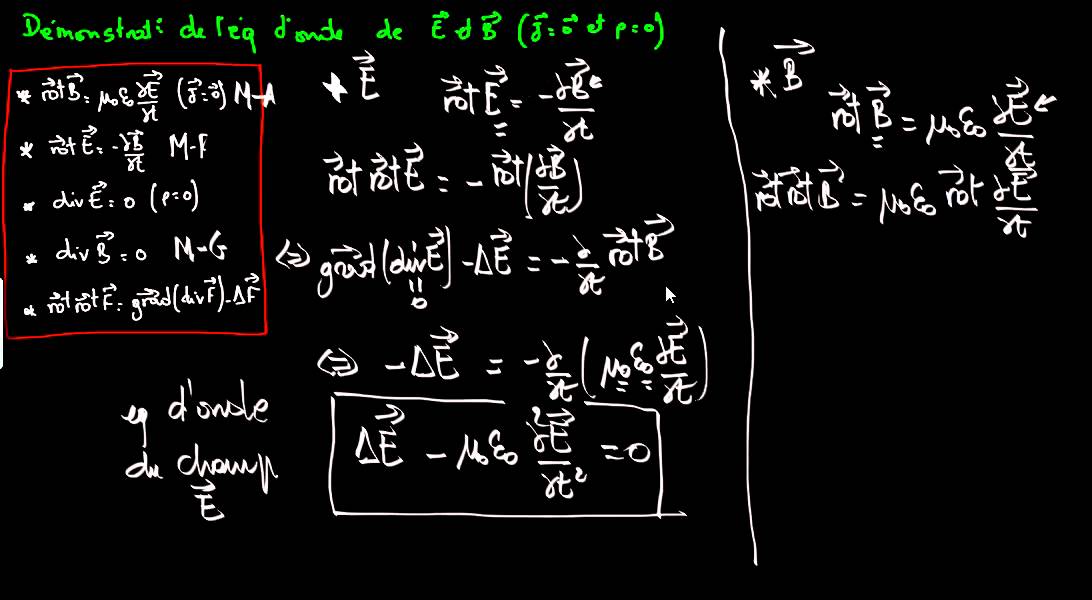 Démonstrat° de l'éq d'onde de E⃗ et B⃗ (j⃗=0⃗ et ρ=0)
* rot⃗ B⃗ = μ₀ε₀ ∂E⃗/∂t (j⃗=0⃗) M-A
* rot⃗ E⃗ = -∂B⃗/∂t M-F
* div E⃗ = 0 (ρ=0)
* div B⃗ = 0 M-G
* rot⃗ rot⃗ F⃗ = grad⃗(div F⃗) - ΔF⃗
* E⃗
rot⃗ E⃗ = -∂B⃗/∂t
rot⃗ rot⃗ E⃗ = -rot⃗(∂B⃗/∂t)
⇔ grad⃗(div E⃗) - ΔE⃗ = -∂/∂t rot⃗ B⃗
=0
⇔ -ΔE⃗ = -∂/∂t (μ₀ε₀ ∂E⃗/∂t)
ΔE⃗ - μ₀ε₀ ∂²E⃗/∂t² = 0
eq d'onde
du champ
E⃗
* B⃗
rot⃗ B⃗ = μ₀ε₀ ∂E⃗/∂t
rot⃗ rot⃗ B⃗ = μ₀ε₀ rot⃗ ∂E⃗/∂t